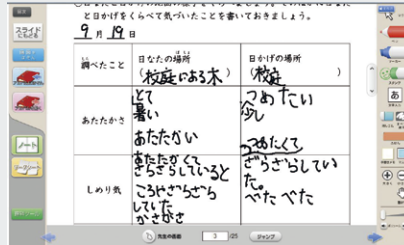 と日かげをくらべて気づいたことを書いておきましょう。
9月19日
調べたこと
日なたの場所
(校庭にある木)
日かげの場所
(校庭 )
あたたかさ
とて
暑い
あたたかい
あたたかくて
つめたい
少し
つめたくて
しめり気
さらさらしていると
ころやざらざら
していた
かさかさ
ざらざらしてい
た。
べた べた
スライド
ノート
あ
先生の画面
3
/25
ジャンプ